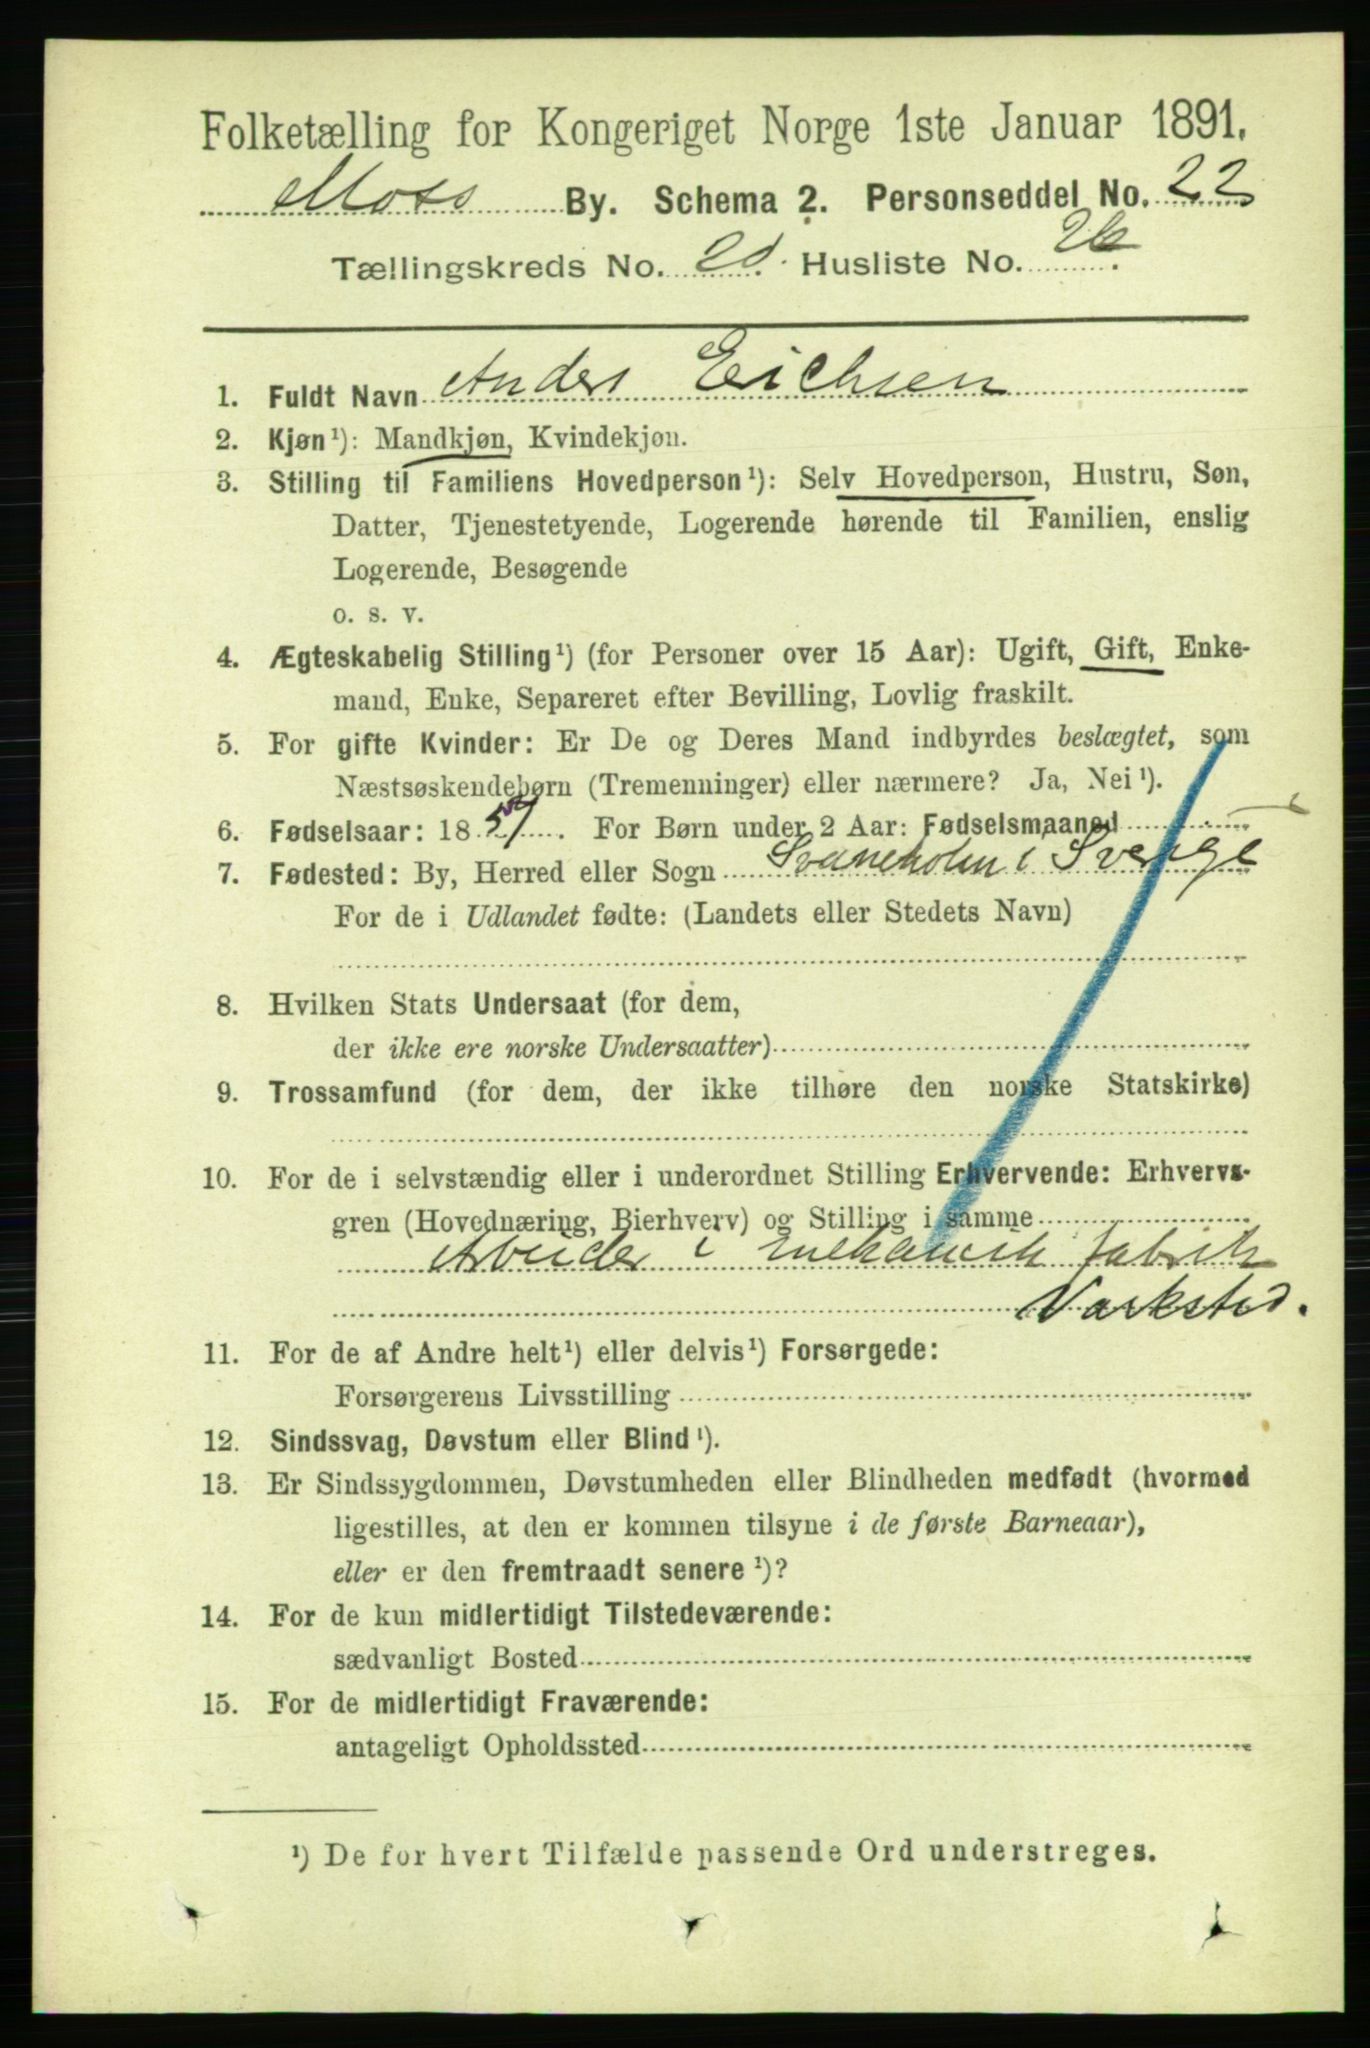 Folketælling for Kongeriget Norge 1ste Januar 1891.
Moss By. Schema 2. Personseddel No. 22
Tællingskreds No. Husliste No. 26
1. Fuldt Navn Anders Erichsen
2. Kjøn¹): Mandkjøn, Kvindekjøn.
3. Stilling til Familiens Hovedperson¹): Selv Hovedperson, Hustru, Søn,
Datter, Tjenestetyende, Logerende hørende til Familien, enslig
Logerende, Besøgende
o. s. v.
4. Ægteskabelig Stilling¹) (for Personer over 15 Aar): Ugift, Gift, Enke-
mand, Enke, Separeret efter Bevilling, Lovlig fraskilt.
5. For gifte Kvinder: Er De og Deres Mand indbyrdes beslægtet, som
Næstsøskendebørn (Tremenninger) eller nærmere? Ja, Nei¹).
6. Fødselsaar: 1857. For Børn under 2 Aar: Fødselsmaaned
7. Fødested: By, Herred eller Sogn Svaneholm i Sverige
For de i Udlandet fødte: (Landets eller Stedets Navn)
8. Hvilken Stats Undersaat (for dem,
der ikke ere norske Undersaatter)
9. Trossamfund (for dem, der ikke tilhøre den norske Statskirke)
10. For de i selvstændig eller i underordnet Stilling Erhvervende: Erhvervs-
gren (Hovednæring, Bierhverv) og Stilling i samme
Arbeider i mekanisk fabrik
Værksted.
11. For de af Andre helt¹) eller delvis¹) Forsørgede:
Forsørgerens Livsstilling
12. Sindssvag, Døvstum eller Blind¹).
13. Er Sindssygdommen, Døvstumheden eller Blindheden medfødt (hvormed
ligestilles, at den er kommen tilsyne i de første Barneaar),
eller er den fremtraadt senere¹)?
14. For de kun midlertidigt Tilstedeværende:
sædvanligt Bosted
15. For de midlertidigt Fraværende:
antageligt Opholdssted
¹) De for hvert Tilfælde passende Ord understreges.